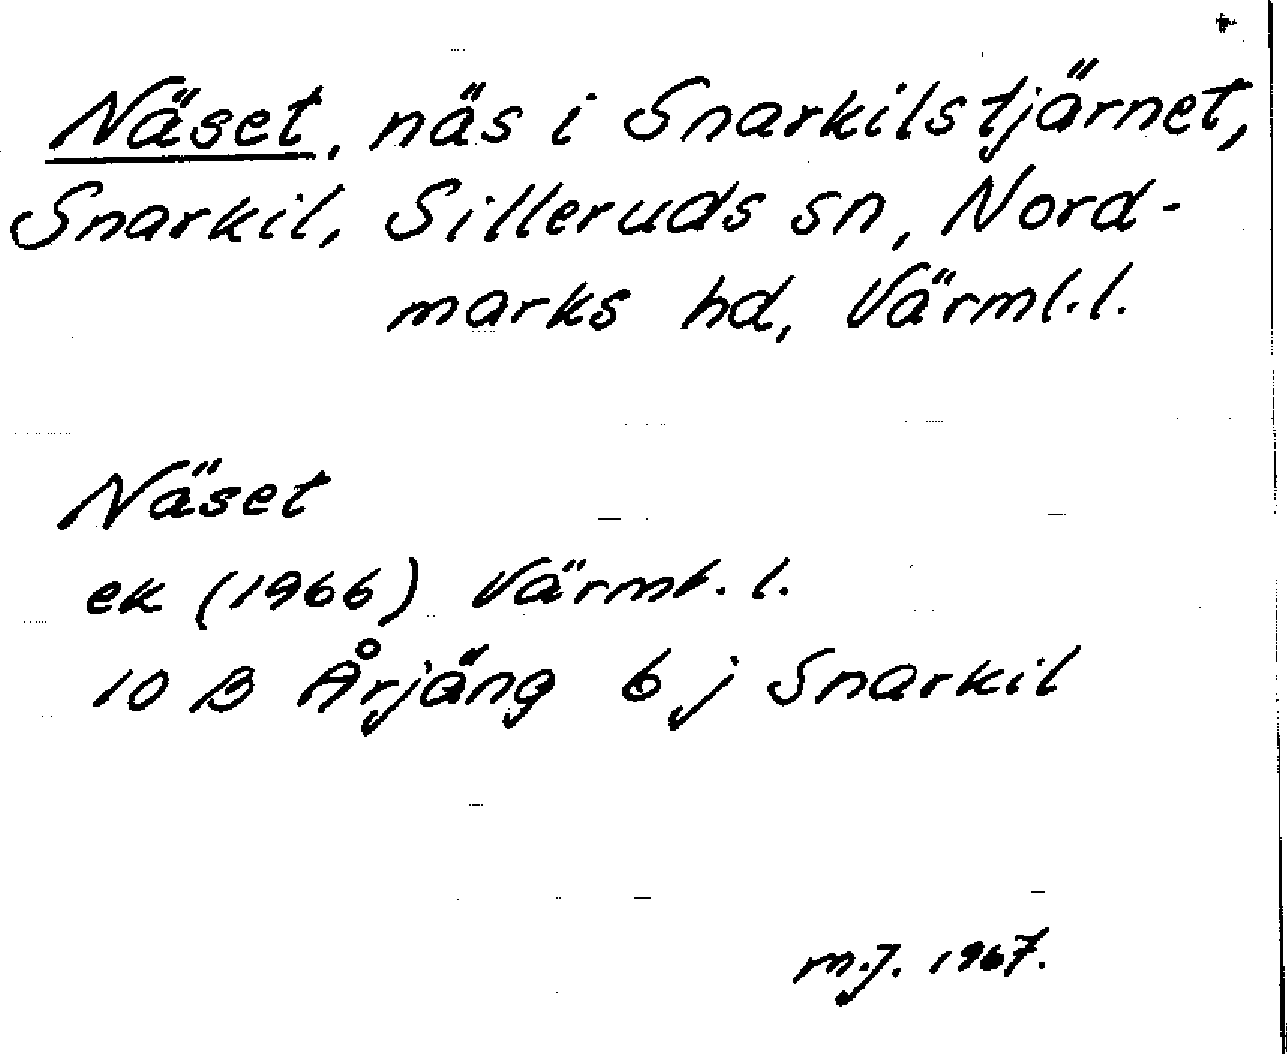 Näset, näs i Snarkilstjärnet,
Snarkil, Silleruds sn, Nord-
marks hd, Värml.l.
Näset
ek (1966) Värml. l.
10 B Årjäng 6 j Snarkil
m.J. 1967.